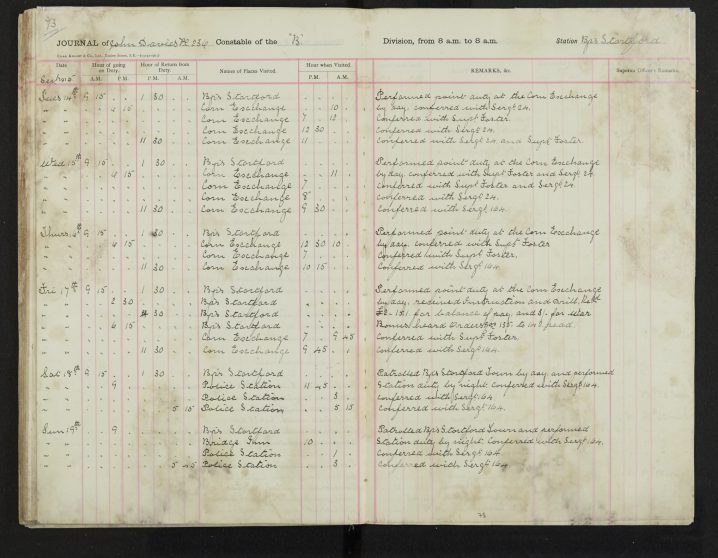 73
JOURNAL of John Davies PC 234 Constable of the "B" Division, from 8 a.m. to 8 a.m. Station Bp's Stortford
Date Hour of going on Duty. Hour of Return from Duty. Names of Places Visited. Hour when Visited. REMARKS, &c. Superior Officer's Remarks.
A.M. P.M. P.M. A.M. P.M. A.M.
Tues 14th 9 15 1 30 Bp's Stortford Performed point duty at the Corn Exchange
" " 4 15 Corn Exchange 10 by day. Conferred with Sergt 24.
" " Corn Exchange 7 12 Conferred with Supt Foster.
" " Corn Exchange 12 30 Conferred with Sergt 24.
" " 11 30 Corn Exchange 11 Conferred with Sergt 24 and Supt Foster.
Wed 15th 9 15 1 30 Bp's Stortford Performed point duty at the Corn Exchange
" " 4 15 Corn Exchange 11 by day, conferred with Supt Foster and Sergt 24
" " Corn Exchange 7 Conferred with Supt Foster and Sergt 24.
" " Corn Exchange 8 Conferred with Sergt 24.
" " 11 30 Corn Exchange 9 30 Conferred with Sergt 164.
Thurs 9 15 1 30 Bp's Stortford Performed point duty at the Corn Exchange
" " 4 15 Corn Exchange 12 30 10 by day. Conferred with Supt Foster
" " Corn Exchange 7 Conferred with Supt Foster.
" " 11 30 Corn Exchange 10 15 Conferred with Sergt 164.
Fri 17th 9 15 1 30 Bp's Stortford Performed point duty at the Corn Exchange
" " 2 30 Bp's Stortford by day, received Instruction and Drill,
" " 4 30 Bp's Stortford for balance of pay, and for War
" " 6 15 Bp's Stortford Bonus. heard Orders read
" " Corn Exchange 7 9 45 Conferred with Supt Foster.
" " 11 30 Corn Exchange 9 45 Conferred with Sergt 164.
Sat 18th 9 15 1 30 Bp's Stortford Patrolled Bp's Stortford Town by day and performed
" " 9 Police Station 11 45 Station duty by night. Conferred with Sergt 164.
" " Police Station 3 Conferred with Sergt 164
" " 5 15 Police Station 5 15 Conferred with Sergt 164.
Sun 19th 9 Bp's Stortford Patrolled Bp's Stortford Town and performed
" " Bridge Inn 10 Station duty by night. Conferred with Sergt 164.
" " Police Station 1 Conferred with Sergt 164
" " 5 45 Police Station 3 Conferred with Sergt 164
73